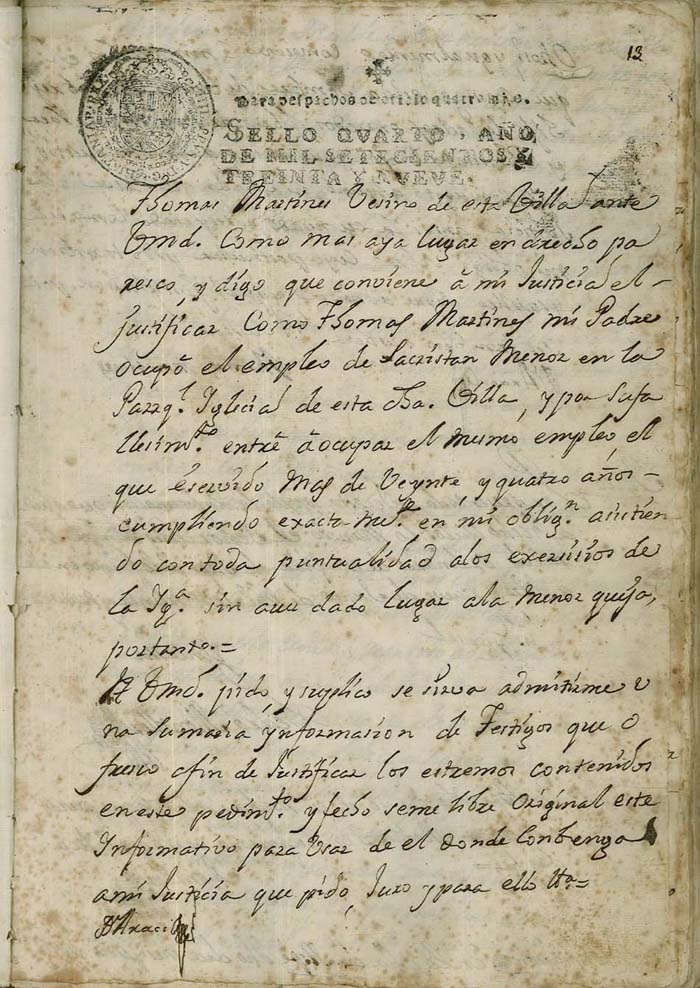 13
Para despachos de oficio quatro mrs.
SELLO QVARTO, AÑO
DE MIL SETECIENTOS Y
TREINTA Y NVEVE.
Thomas Martines Vesino de esta Villa ante
Vmd. Como mas aya lugar en drecho pa
resco, y digo que conviene â mi Justicia el
justificar Como Thomas Martines mi Padre
ocupô el empleo de Sacristan Menor en la
Parrql. Iglecia de esta dha. Villa, y por su fa
llesimto. entrê â ocupar el mismo empleo, el
que êservido Mas de Veynte, y quatro años
cumpliendo exactamte. en mi obligon. asistien
do con toda puntualidad a los exersisios de
la Iga. sin aver dado lugar a la menor queja,
portanto.=
A Vmd. pido, y suplico se sirva admitirme v
na Sumaria ynformasion de Testigos que o
fresco afin de Justificar los estremos contenidos
en este pedimto. y fecho seme libre Original este
Informativo para Vsar de el donde Conbenga
ami Justicia que pido, Juro y para ello Va=